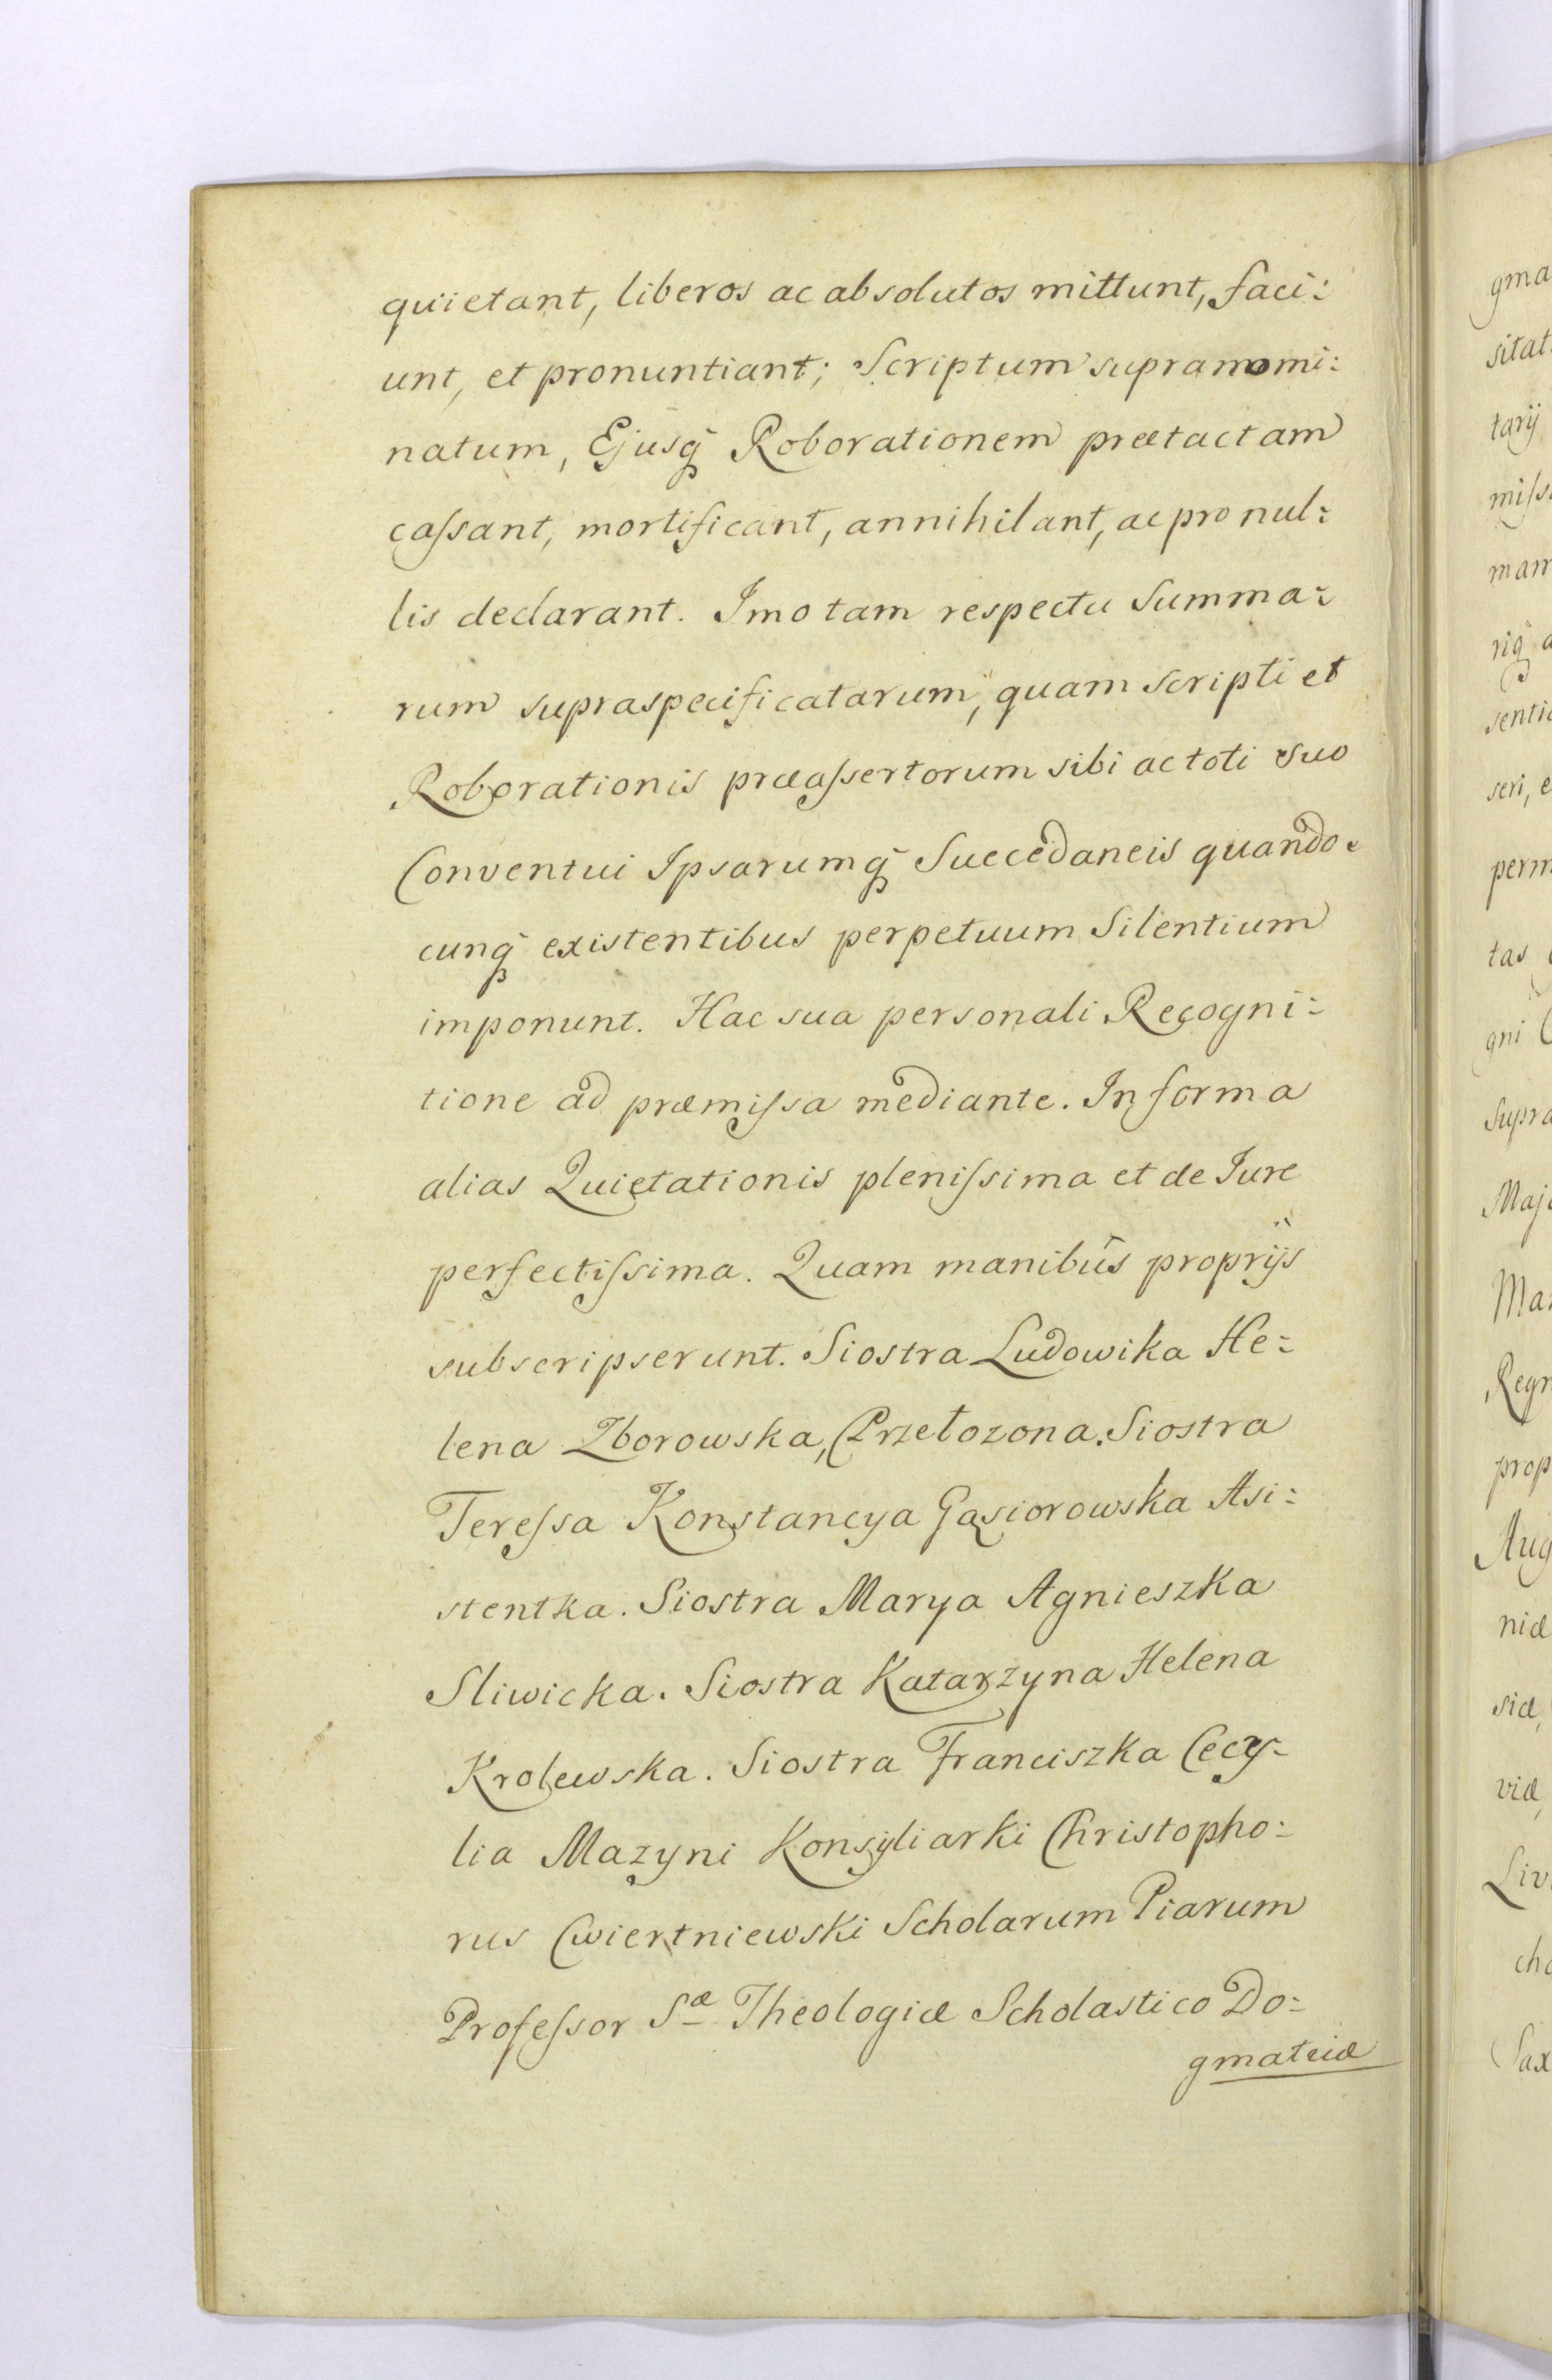 quietant, liberos ac absolutos mittunt, faci:
unt, et pronuntiant; Scriptum supranomi:
natum, Ejusq́ Roborationem prætactam
caſsant, mortificant, annihilant, ac pro nul:
lis declarant. Imo tam respectu Summa:
rum supraspecificatarum, quam scripti et
Roborationis præaſsertorum sibi ac toti suo
Conventui Ipsarumq́ Succedaneis quando:
cunq́ existentibus perpetuum Silentium
imponunt. Hac sua personali Recogni:
tione ad præmiſsa mediante. In forma
alias Quietationis pleniſsima et de Jure
perfectiſsima. Quam manibus proprijs
subscripserunt. Siostra Ludowika He:
lena Zborowska, Przełozona. Siostra
Tereſsa Konstancya Gąsiorowska Asi:
stentka. Siostra Marya Agnieszka
Sliwicka. Siostra Katarzyna Helena
Krolewska. Siostra Franciszka Cecy:
lia Mazyni Konsyliarki Christopho:
rus Cwiertniewski Scholarum Piarum
Profeſsor Sæ Theologiæ Scholastico Do:
gmaticæ
gma
sitat
tarij
miſs
mam
riq́ a
sentia
seri, e
perm
tas
gni
Supra
Maj
Ma
Regn
prop
Aug
niæ
siæ,
viæ,
Liv
cho
Sax